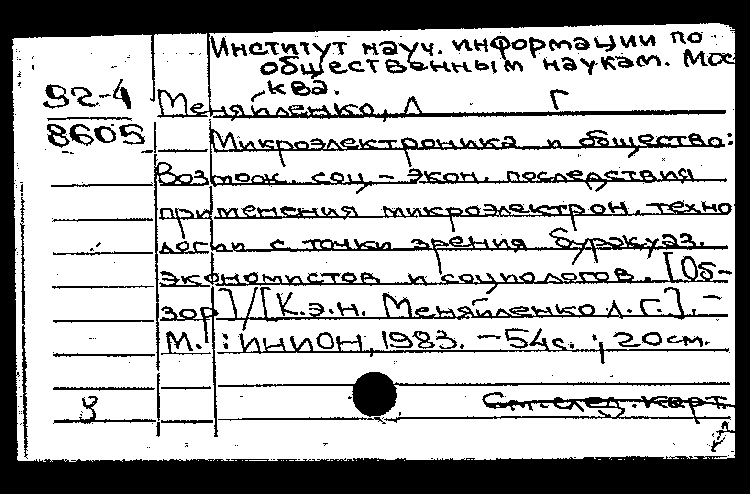 Институт науч. информации по
общественным наукам. Мос
ква.
92-4
8605
Меняйленко, Л Г
Микроэлектроника и общество:
Возмож. соц. - экон. последствия
применения микроэлектрон. техно
логии с точки зрения буржуаз.
экономистов и социологов. [Об-
зор] / [К.э.н. Меняйленко Л.Г.]. -
М. : ИНИОН, 1983. - 54с. ; 20см.
См. след. карт.